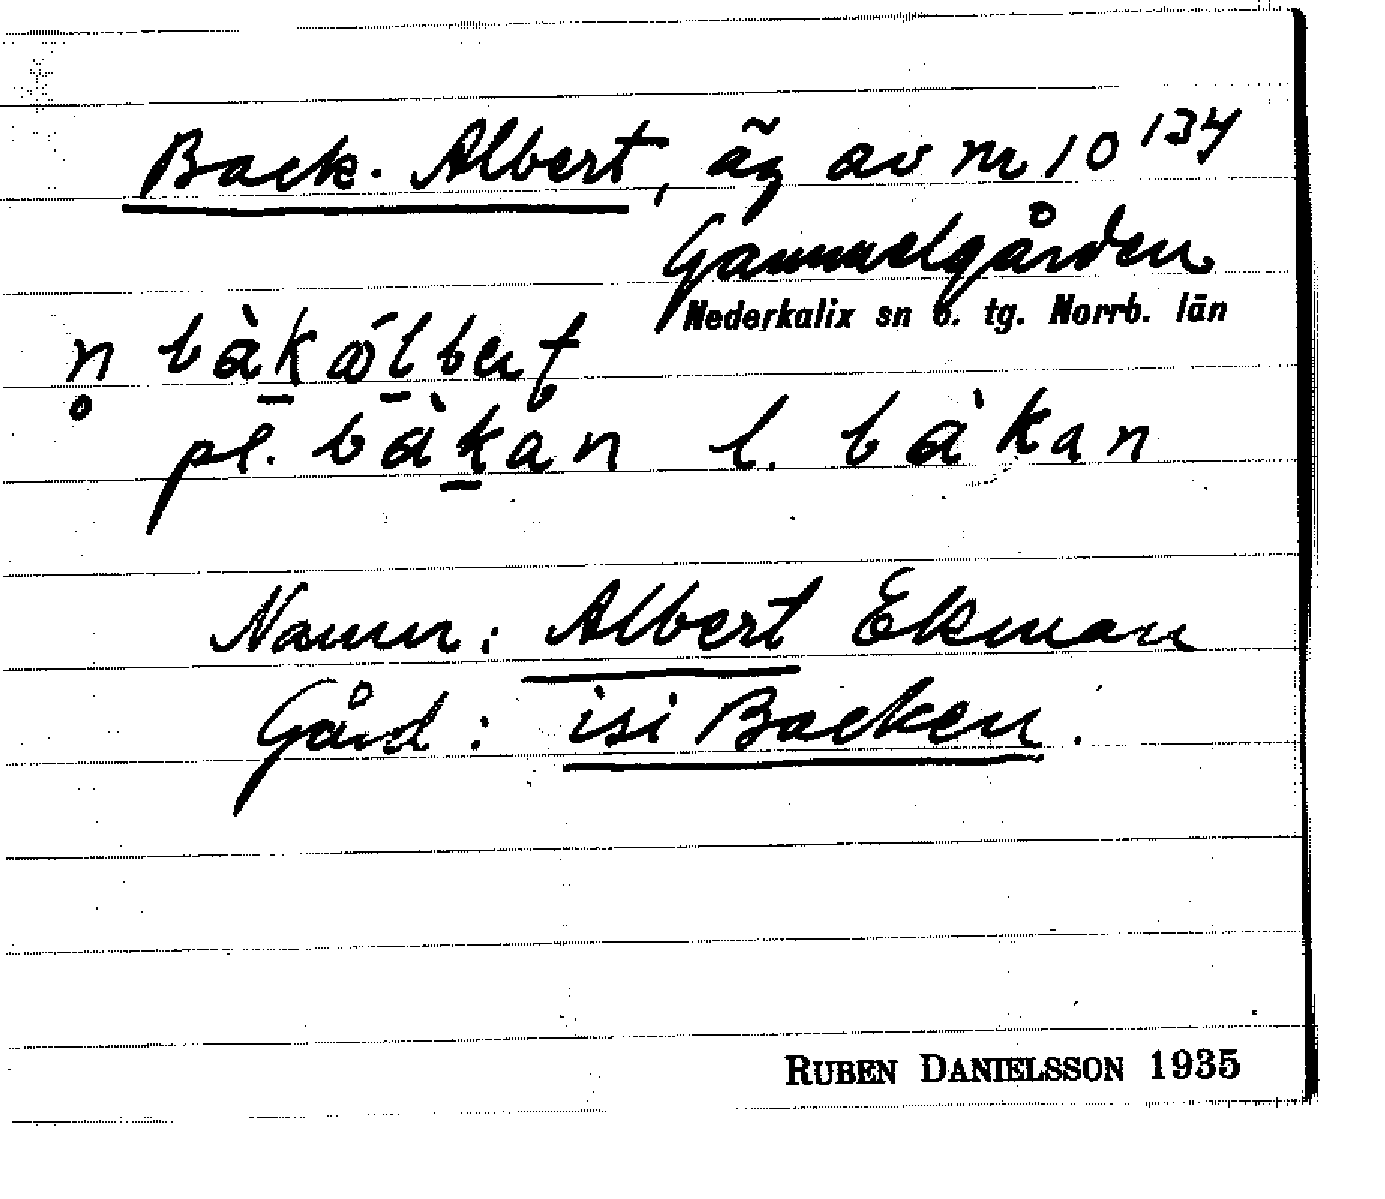 Back-Albert, äg av nr 10¹³⁴
Gammelgården
Nederkalix sn o. tg. Norrb. län
n̥ bàk ólbert
pl. bàkan l. bàkan
Namn: Albert Ekman
Gård: isi Backen.
RUBEN DANIELSSON 1935